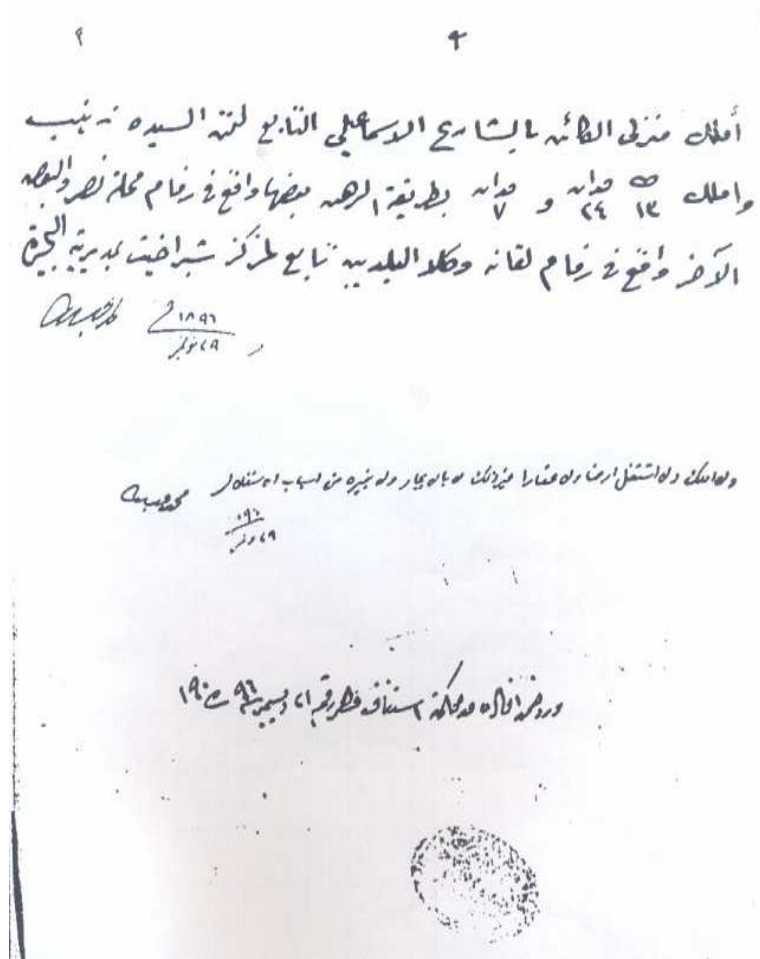 ٢
أملك منزلى الكائن بالشارع الاسماعيلى التابع لثمن السيده زينب
واملك ١٣ ط فدان ٢٤ و فدان ٧ بطريقة الرهن بعضها واقع فى زمام محلة نصر والبعض
الآخر واقع فى زمام لقانه وكلا البلدين تابع لمركز شبراخيت بمديرية البحيرة
٢٩ نوفمبر ١٨٩٦ محمد عبده
ولا املك ولا استغل ارضا ولا عقارا غير ذلك لا بالايجار ولا بغيره من اسباب الاستغلال محمد عبده
٢٩ نوفمبر ٨٩٦
ورد ضمن افاده محكمة استئناف مصر رقم ٢١ ديسمبر سنة ٩٦